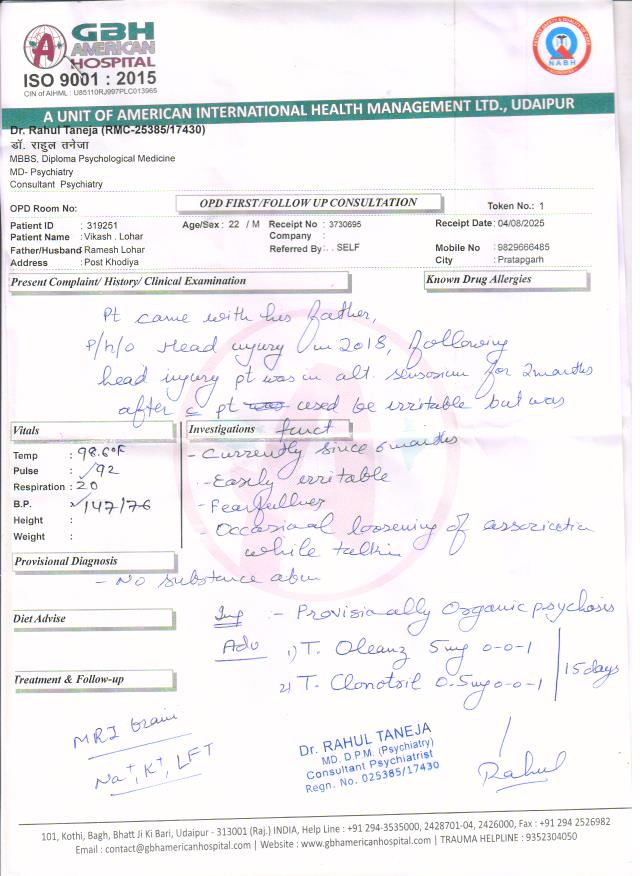 GBH
AMERICAN
HOSPITAL
ISO 9001 : 2015
CIN of AIHML : U85110RJ997PLC013965
NABH
A UNIT OF AMERICAN INTERNATIONAL HEALTH MANAGEMENT LTD., UDAIPUR
Dr. Rahul Taneja (RMC-25385/17430)
डॉ. राहुल तनेजा
MBBS, Diploma Psychological Medicine
MD- Psychiatry
Consultant Psychiatry
OPD Room No:
OPD FIRST/FOLLOW UP CONSULTATION
Token No.: 1
Patient ID : 319251 Age/Sex : 22 / M Receipt No : 3730695 Receipt Date : 04/08/2025
Patient Name : Vikash . Lohar Company :
Father/Husband Ramesh Lohar Referred By : . . SELF Mobile No : 9829666485
Address : Post Khodiya City : Pratapgarh
Present Complaint/ History/ Clinical Examination Known Drug Allergies
Pt came with his father,
P/h/o Head injury in 2018, following
head injury pt was in alt. sensorium for 2 months
after c pt was used be irritable but was
funct
Vitals Investigations
Temp : 98.6°F
Pulse : 92
Respiration : 20
B.P. : 147/76
Height :
Weight :
- Currently since 6 months
- Easily irritable
- Fearfullness
- Occasional loosening of association
while talkin
Provisional Diagnosis
- No substance abun
Diet Advise
Imp :- Provisionally Organic psychosis
Adv 1) T. Oleanz 5mg 0-0-1
2) T. Clonotril 0.5mg 0-0-1
15 days
Treatment & Follow-up
MRI brain
Na+, K+, LFT
Dr. RAHUL TANEJA
MD. D.P.M. (Psychiatry)
Consultant Psychiatrist
Regn. No. 025385/17430
Rahul
101, Kothi, Bagh, Bhatt Ji Ki Bari, Udaipur - 313001 (Raj.) INDIA, Help Line : +91 294-3535000, 2428701-04, 2426000, Fax : +91 294 2526982
Email : contact@gbhamericanhospital.com | Website : www.gbhamericanhospital.com | TRAUMA HELPLINE : 9352304050